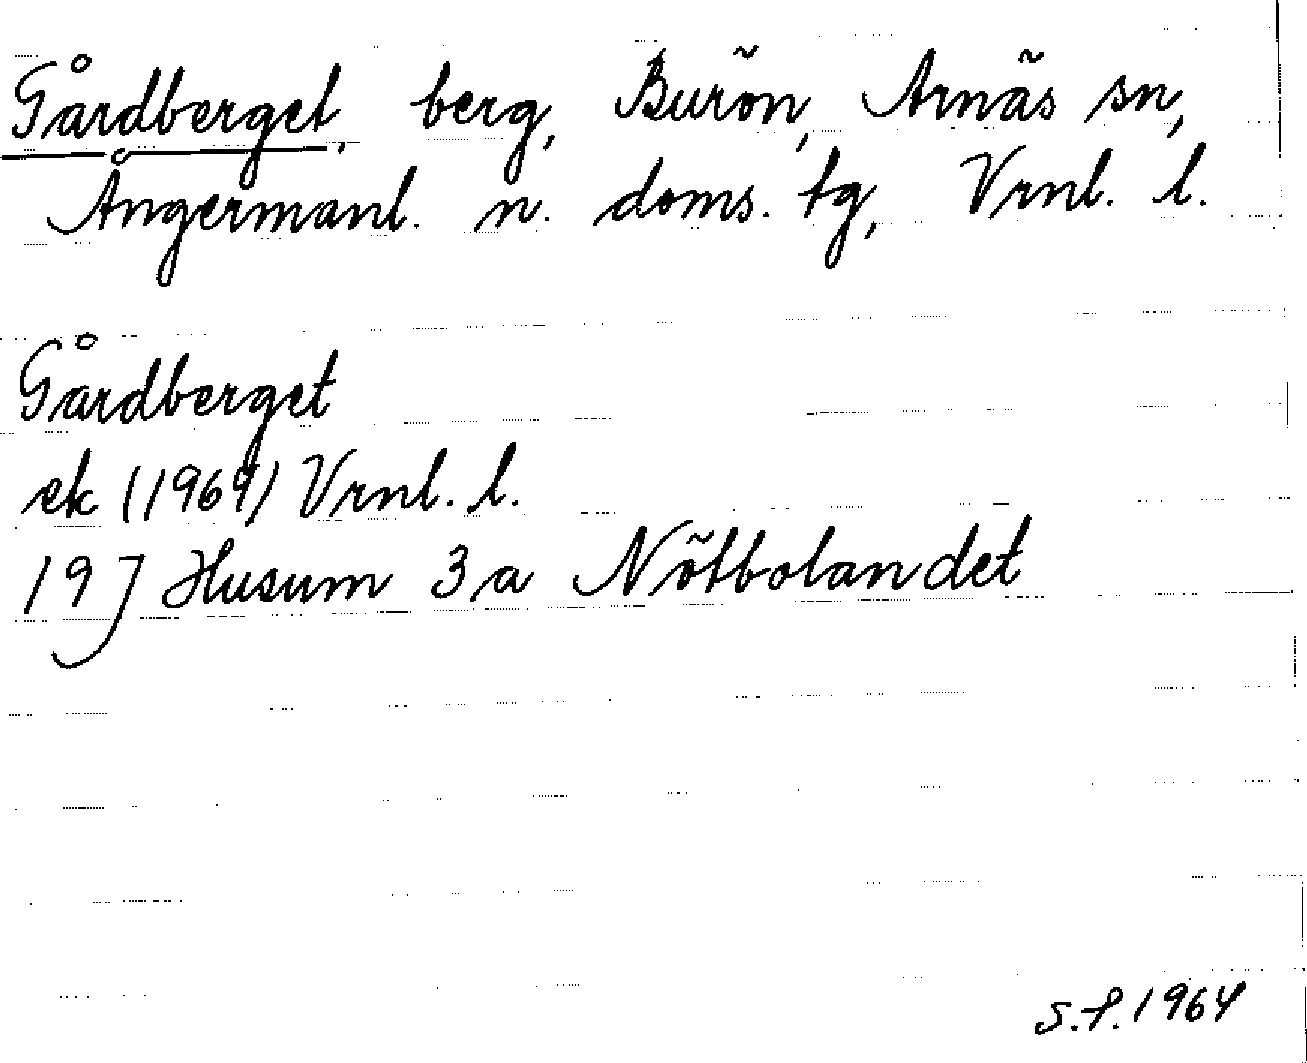 Gårdberget, berg, Burön, Arnäs sn,
Ångermanl. n. doms. tg, Vrnl. l.
Gårdberget
ek (1964) Vrnl. l.
19J Husum 3a Nötbolandet
S.F. 1964